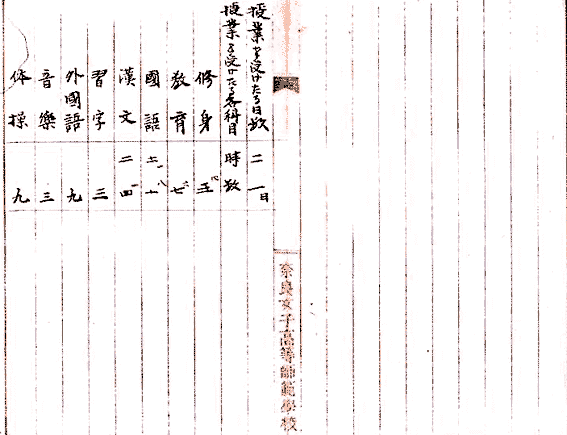 奈良女子高等師範學校
授業を受けたる日数 二一日
授業を受けたる各科目 時数
修身 五
教育 七
國語 十
漢文 二四
習字 三
外國語 九
音樂 三
体操 九